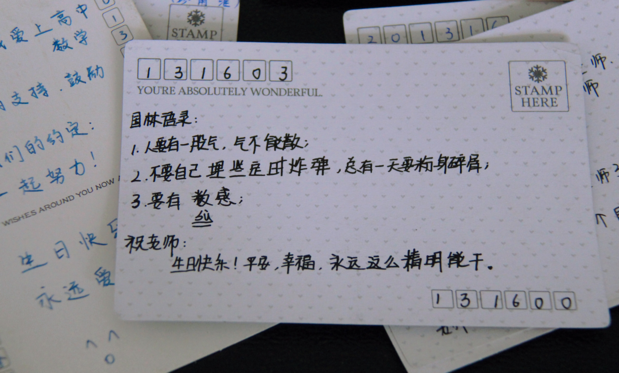 爱上高中
数学
支持,鼓励
们的约定:
一起努力!
WISHES AROUND YOU NOW
生日快乐
永远爱
STAMP
1 3
2 0 1 3 1 6
131603
YOU'RE ABSOLUTELY WONDERFUL.
STAMP
HERE
国林语录:
1.人要有一股气,气不能散;
2.不要自己埋些定时炸弹,总有一天要粉身碎骨;
3.要有数感;
祝老师:
生日快乐!平安,幸福,永远这么精明能干。
131600
师
师